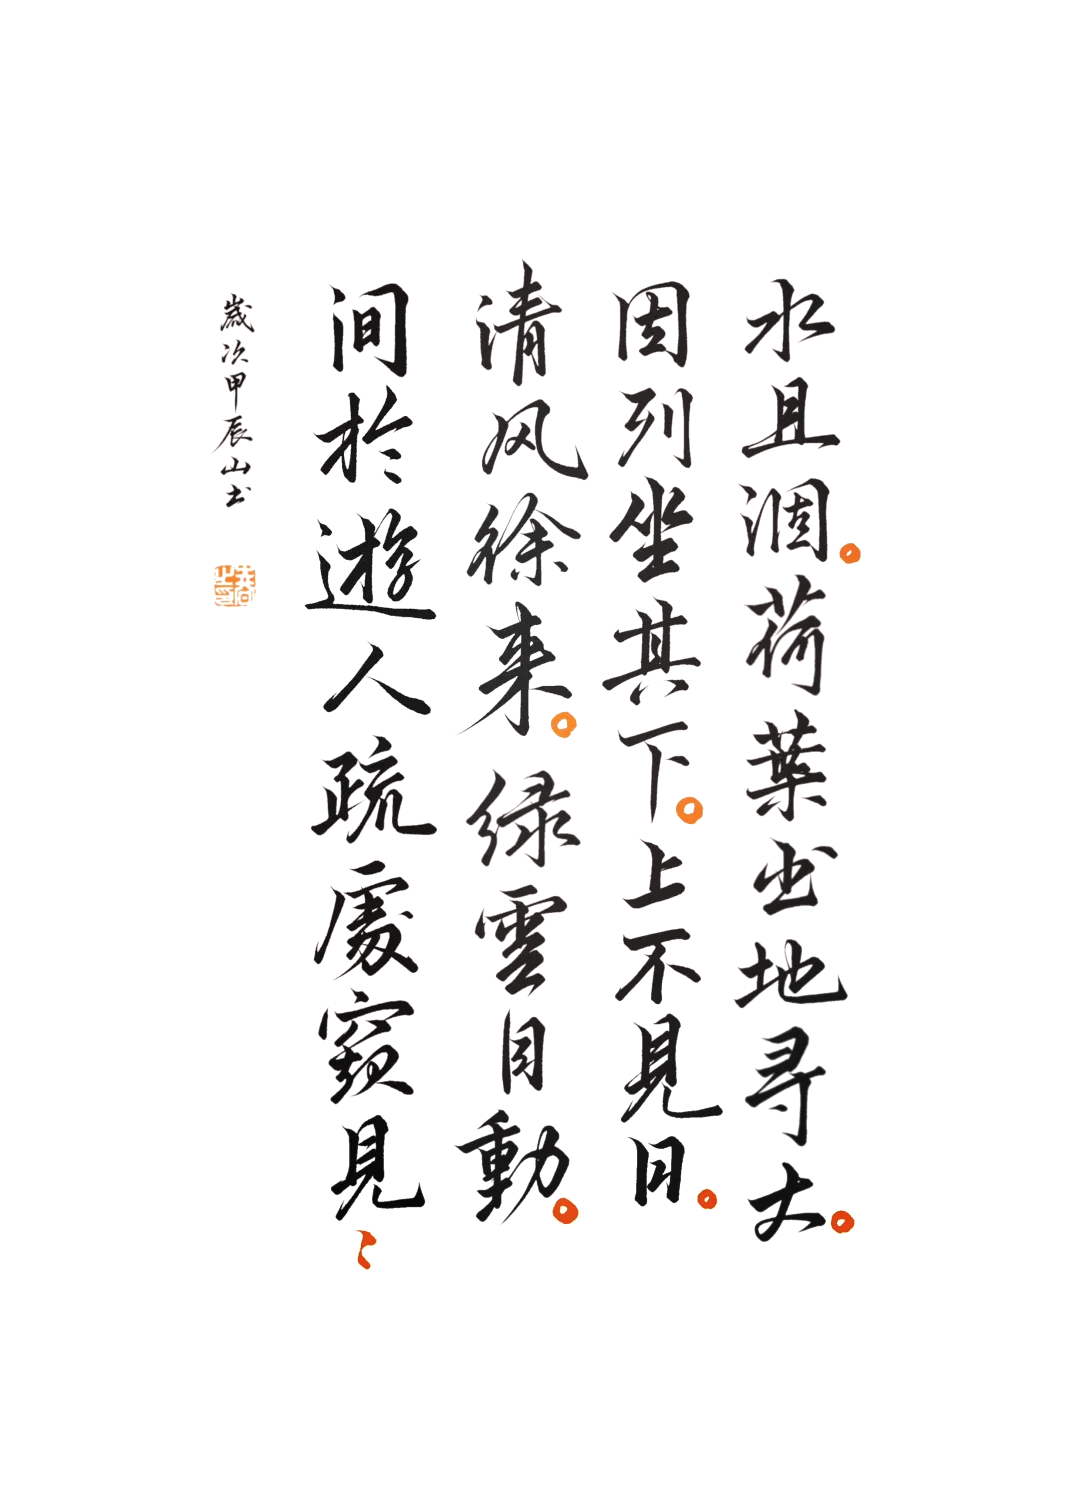 水且涸。荷葉出地尋丈。
因列坐其下。上不見日。
清风徐来。绿雲自動。
间於遊人疏處窺見〻
歲次甲辰山书